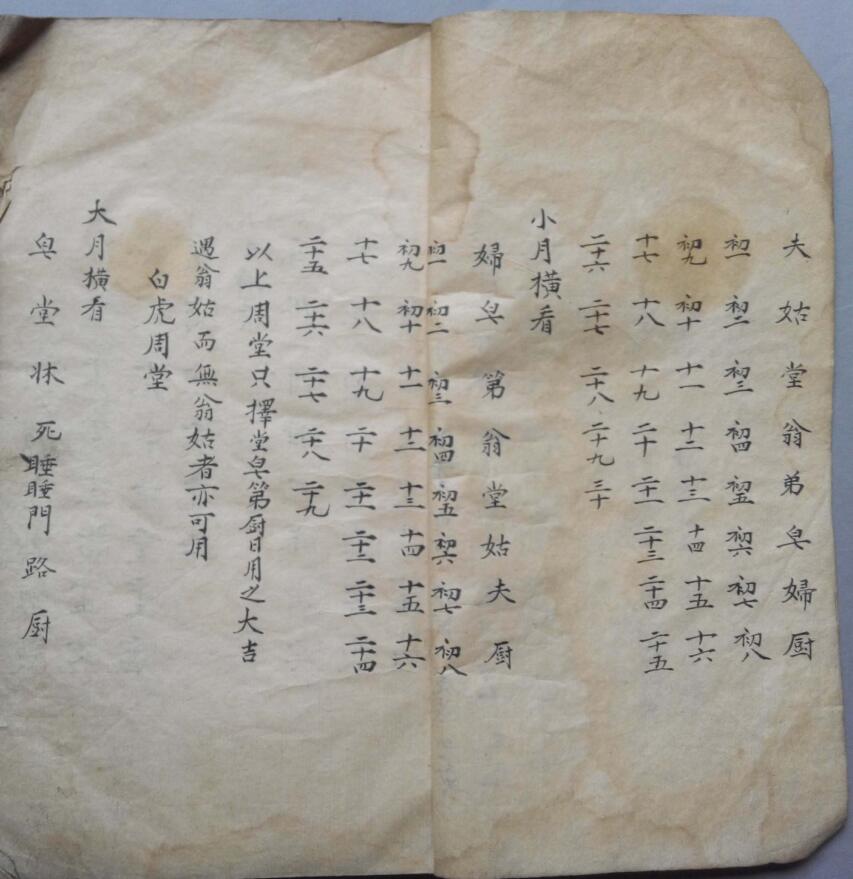 夫姑堂翁弟皂婦厨
初一初二初三初四初五初六初七初八
初九初十十一十二十三十四十五十六
十七十八十九二十二十一二十三二十四二十五
二十六二十七二十八二十九三十
小月橫看
婦皂第翁堂姑夫厨
初一初二初三初四初五初六初七初八
初九初十十一十二十三十四十五十六
十七十八十九二十二十一二十二二十三二十四
二十五二十六二十七二十八二十九
以上周堂只擇堂皂第厨日用之大吉
遇翁姑而無翁姑者亦可用
白虎周堂
大月橫看
皂堂牀死睡睡門路厨